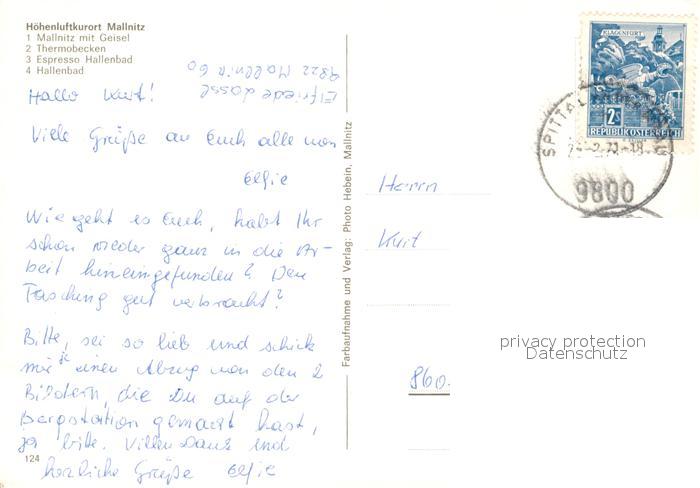 Höhenluftkurort Mallnitz
1 Mallnitz mit Geisel
2 Thermobecken
3 Espresso Hallenbad
4 Hallenbad
Elfriede
9822 Mallnitz 60
Hallo Kurt!
Viele Grüße an Euch alle von
Elfie
Wie geht es Euch, habt Ihr
schon wieder ganz in die Ar-
beit hineingefunden? Den
Fasching gut verbracht?
Bitte, sei so lieb und schick
mir einen Abzug von den 2
Bildern, die Du auf der
Bergstation gemacht hast,
ja bitte. Vielen Dank und
herzliche Grüße Elfie
124
Farbaufnahme und Verlag: Photo Hebein, Mallnitz
KLAGENFURT
2s
REPUBLIK ÖSTERREICH
SPITTAL
9800
Herrn
Kurt
860.
privacy protection
Datenschutz